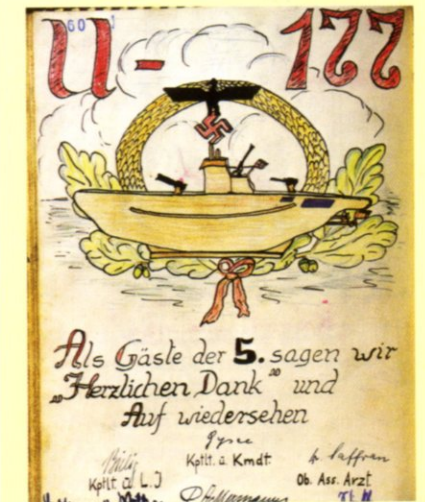 60
U-177
Als Gäste der 5. sagen wir
„Herzlichen Dank" und
Auf wiedersehen
Gysae
Kptlt. u. Kmdt.
Kptlt. u. L.J
Ob. Ass. Arzt